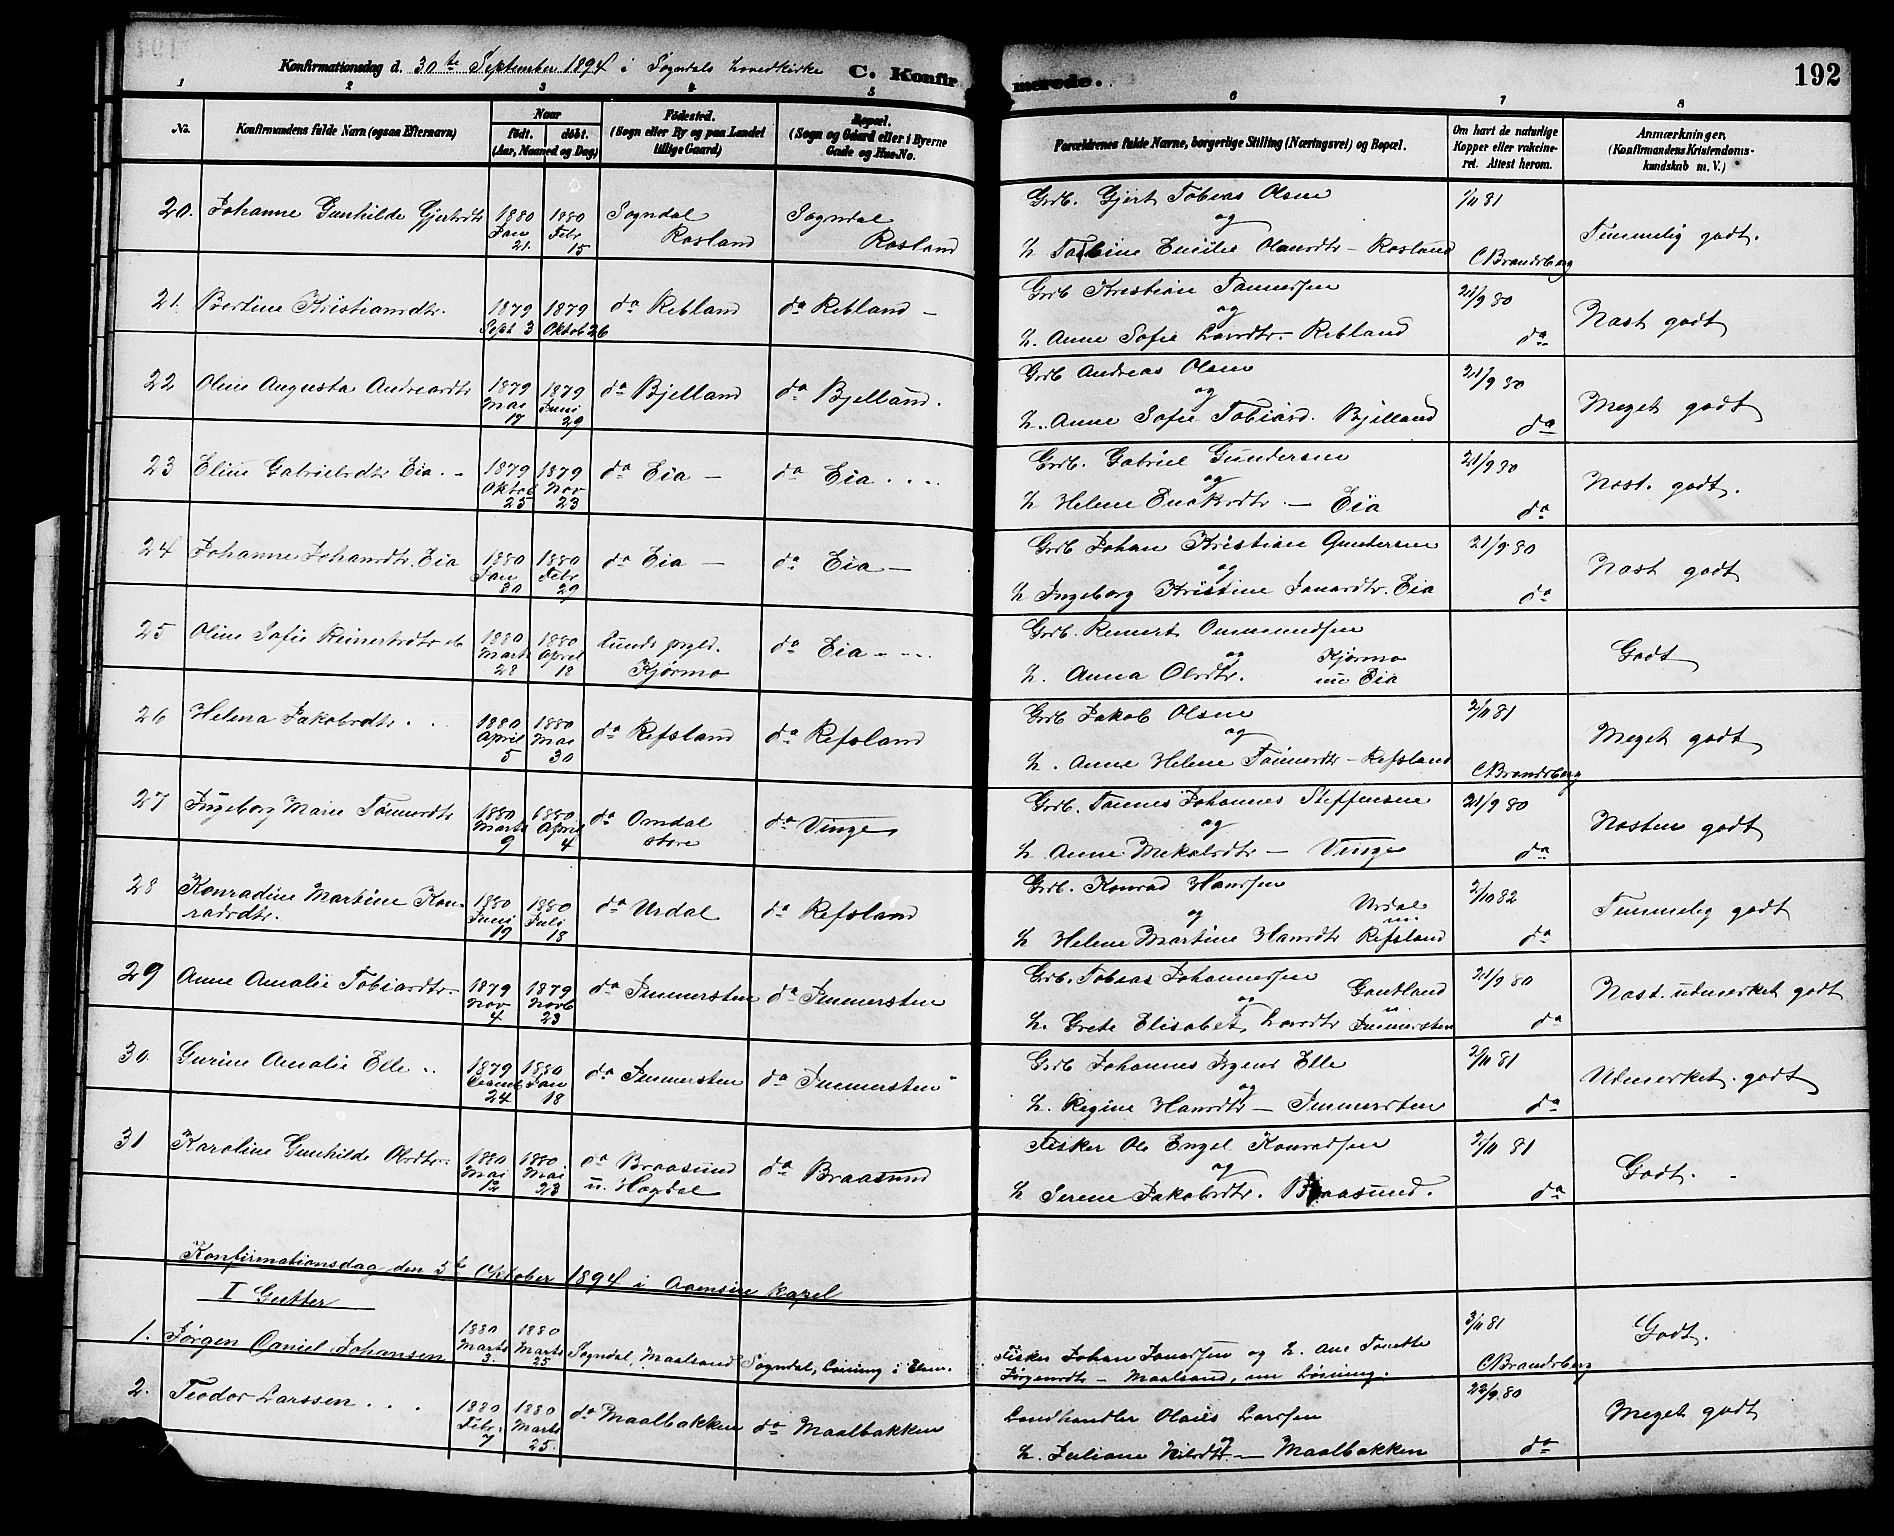 Konfirmationsdag d. 30te September 1894 i Sogndals hovedkirke C. Konfirmerede. 192
1 2 3 4 5 6 7 8
No.
Konfirmandens fulde Navn (ogsaa Efternavn)
Naar
født. døbt.
(Aar, Maaned og Dag)
Fødested.
(Sogn eller By og paa Landet
tillige Gaard)
Bopæl.
(Sogn og Gaard eller i Byerne
Gade og Hus-No.
Forældrenes fulde Navne, borgerlige Stilling (Næringsvei) og Bopæl.
Om havt de naturlige
Kopper eller vakcine-
ret. Attest herom.
Anmærkninger.
(Konfirmandens Kristendoms-
kundskab m. V.)
20. Johanne Gunhilde Gjertsdtr 1880 Jan 21. 1880 Febr 15 Sogndal Rosland Sogndal Rosland
Grdb. Gjert Tobias Olsen
og
h. Emilie Olausdtr - Rosland 1/11 81 CBrandsberg Temmelig godt.
21. Bertine Kristiansdtr. 1879 Sept 3 1879 Oktob 26 do Rebland do Rebland -
Grdb Kristian Tønnersen
og
h. Anne Sofie Larsdtr. - Rebland 21/9 80 do Nost godt
22 Oline Augusta Andreasdtr 1879 Mai 17 1879 Juni 29 do Bjelland do Bjelland.
Grdb Andreas Olsen
og
h. Anne Sofie Tobiasd. Bjelland 21/9 80 do Meget godt
23 Eline Gabrielsdtr Eia. - 1879 Oktob 25 1879 Nov 23 do Eia - do Eia . . . .
Grdb. Gabriel Gundersen
og
h Helene Enoksdtr. - Eia 21/9 80 do Nost. godt.
24 Johanne Johansdtr. Eia 1880 Jan 30 1880 Febr 29 do Eia - do Eia -
Grdb Johan Kristian Gundersen
og
h Ingeborg Kristine Jonasdtr. Eia 21/9 80 do Nost godt
25 Oline Sofie Reinertsdtr 1880 Marts 28 1880 April 18 Lunds prgld. Kjørmo do Eia - - - -
Grdb. Reinert Ommundsen
og Kjørmo
h. Anna Olsdtr. nu Eia Godt
26 Helena Jakobsdtr. . . 1880 April 5 1880 Mai 30 do Refsland do Refsland
Grdb Jakob Olsen
og
h. Anne Helene Tønnesdtr - Refsland 2/11 81 CBrandsberg Meget godt
27 Ingeborg Marie Tønnesdtr 1880 Marts 9 1880 April 4 do Omdal store do Vinge
Grdb. Tønnes Johannes Steffensen
og
h Anne Mekalsdtr - Vinge 21/9 80 do Nosten godt
28 Konradine Martine Kon-
radsdtr. 1880 Juni 19 1880 Juli 18 do Urdal do Refsland
Grdb. Konrad Hanssen Urdal
og nu
h Helene Martine Hansdtr Refsland 2/10 82 do Temmelig godt
29 Anne Amalie Tobiasdtr. 1879 Nov 4 1879 Novb 23 do Immersten do Immersten
Grdb. Tobias Johannesen Gautland
og
h. Grete Elisabet Larsdtr Immersten 21/9 80 do Nost. udmerket godt
30 Gurine Amalie Elle . . 1879 Decemb 24 1880 Jan 18 do Immersten do Immersten
Grdb Johannes Irgens Elle
og
h. Regine Hansdtr - Immersten 2/11 81 do Udmerket. godt
31 Karoline Gunhilde Olsdtr. 1880 Mai 12 1880 Mai 23 do Braasund u. Hogdal do Braasund
Fisker Ole Engel Konradsen
og
h Serene Jakobsdtr. Braasund. 2/11 81 do Godt.
Konfirmationsdag den 5te Oktober 1894 i Aamsine kapel
I Gutter
1. Jørgen Daniel Johansen 1880 Marts 3. 1880 Marts 25 Sogndal, Maalsand Sogndal,
Fisker Johan Jonassen og h. Ane Tonette
Jørgensdtr - Maalsand, nu 3/11 81 CBrandsberg Godt.
2. Teodor Larssen . . . 1880 Febr. 7 1880 Marts 25. do Maalbakken do Maalbakken
Landhandler Olaus Larssen
og
h. Juliane Nilsdtr. - Maalbakken 22/9 80 do Meget godt